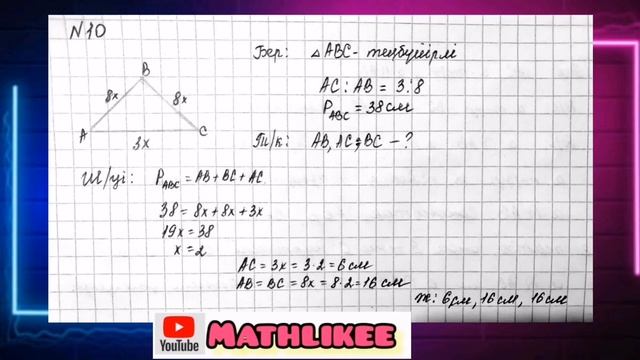 N10
Бер: △ABC - теңбүйірлі
AC : AB = 3:8
P_ABC = 38 см
Т/к: AB, AC, BC - ?
B
8x 8x
A C
3x
Ш/уі: P_ABC = AB + BC + AC
38 = 8x + 8x + 3x
19x = 38
x = 2
AC = 3x = 3·2 = 6 см
AB = BC = 8x = 8·2 = 16 см
Ж: 6 см, 16 см, 16 см
YouTube
MATHLIKEE